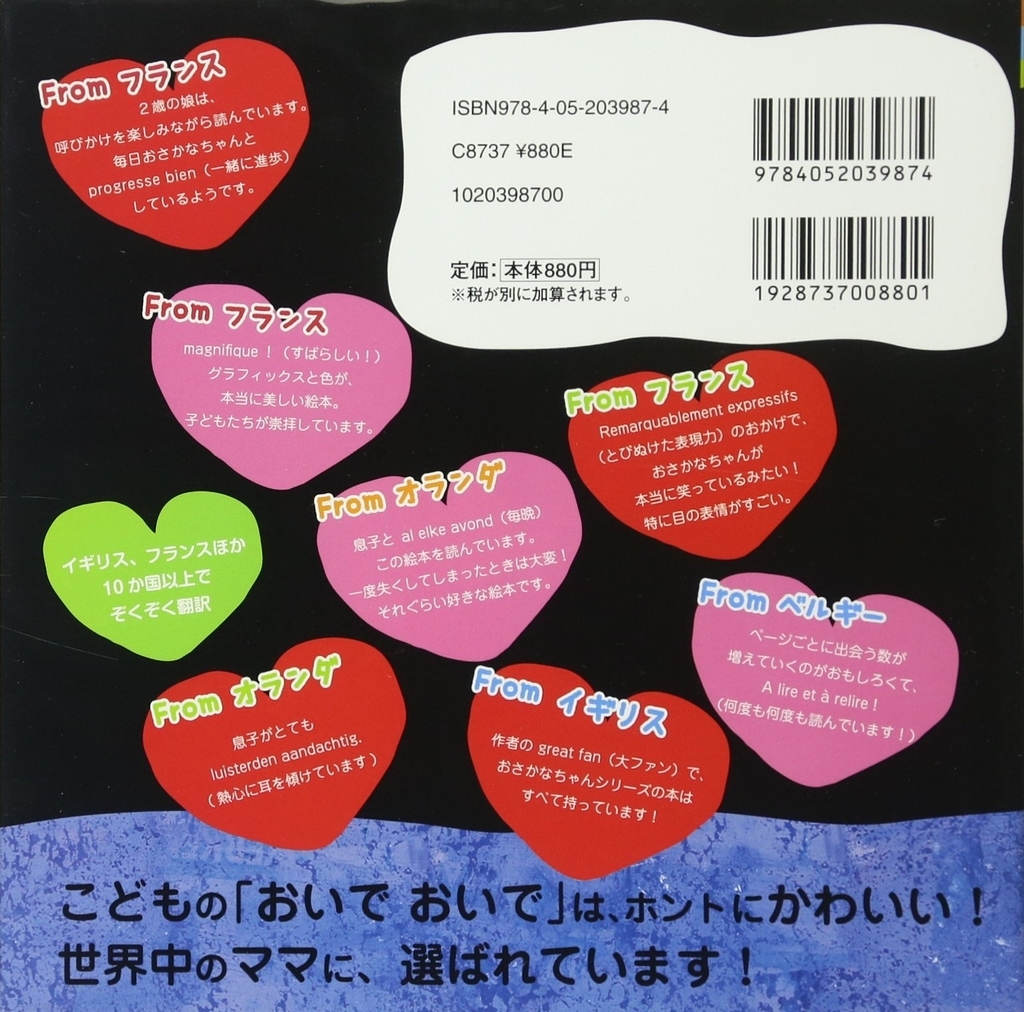 From フランス
2歳の娘は、
呼びかけを楽しみながら読んでいます。
毎日おさかなちゃんと
progresse bien（一緒に進歩）
しているようです。
ISBN978-4-05-203987-4
C8737 ¥880E
1020398700
定価：本体880円
※税が別に加算されます。
9784052039874
1928737008801
From フランス
magnifique！（すばらしい！）
グラフィックスと色が、
本当に美しい絵本。
子どもたちが崇拝しています。
From フランス
Remarquablement expressifs
（とびぬけた表現力）のおかげで、
おさかなちゃんが
本当に笑っているみたい！
特に目の表情がすごい。
From オランダ
息子と al elke avond（毎晩）
この絵本を読んでいます。
一度失くしてしまったときは大変！
それぐらい好きな絵本です。
イギリス、フランスほか
10か国以上で
ぞくぞく翻訳
From ベルギー
ページごとに出会う数が
増えていくのがおもしろくて、
A lire et à relire！
（何度も何度も読んでいます！）
From オランダ
息子がとても
luisterden aandachtig.
（熱心に耳を傾けています）
From イギリス
作者の great fan（大ファン）で、
おさかなちゃんシリーズの本は
すべて持っています！
こどもの「おいで おいで」は、ホントにかわいい！
世界中のママに、選ばれています！